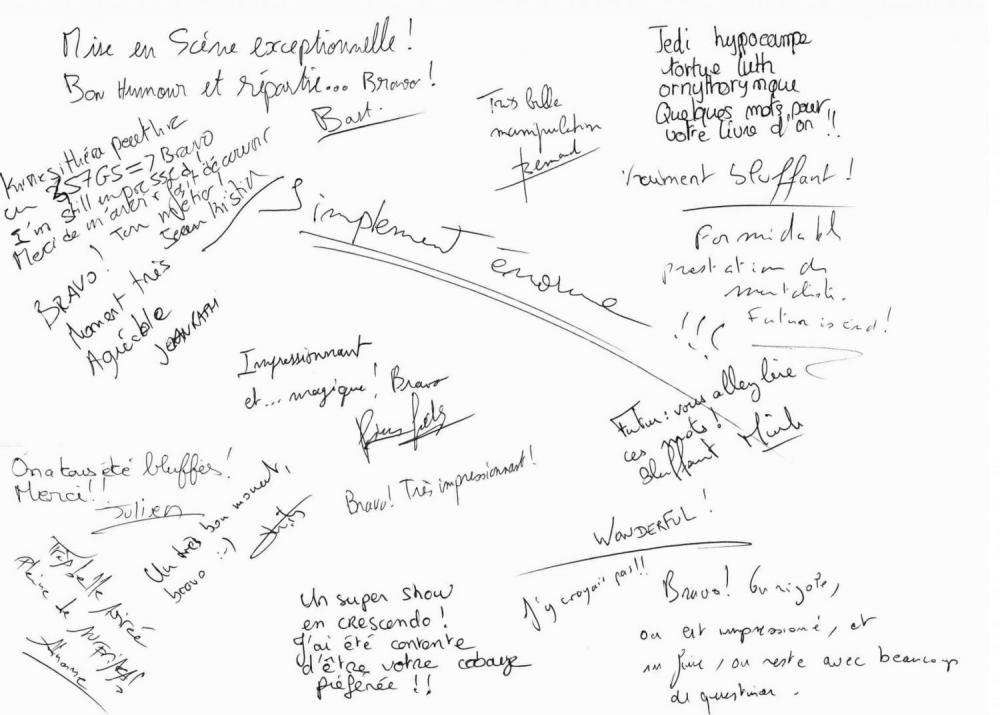 Mise en Scène exceptionnelle!
Bon Humour et répartie... Bravo!
Bast.
Très belle
manipulation
Bernard
Jedi hypocampe
tortue luth
ornythorynque
Quelques mots pour
votre livre d'or !!
vraiment bluffant!
en 357G5 => Bravo
I'm still impressed!
Merci de m'avoir fait découvrir
Ton métier!
Simplement énorme !!!
Formidable
prestation du
mentaliste.
Futur is end!
BRAVO!
Moment très
Agréable
Impressionnant
et... magique! Bravo
Futur: vous allez lire
ces mots!
Bluffant
On a tous été bluffés!
Merci!!
Julien
Un très bon moment,
bravo :-)
Bravo! Très impressionnant!
WONDERFUL!
J'y croyais pas!!
Très belle soirée
pleine de
Un super show
en CRESCENDO!
J'ai été contente
d'être votre cobaye
préférée !!
Bravo! On rigole,
on est impressioné, et
in fine, on reste avec beaucoup
de questions.